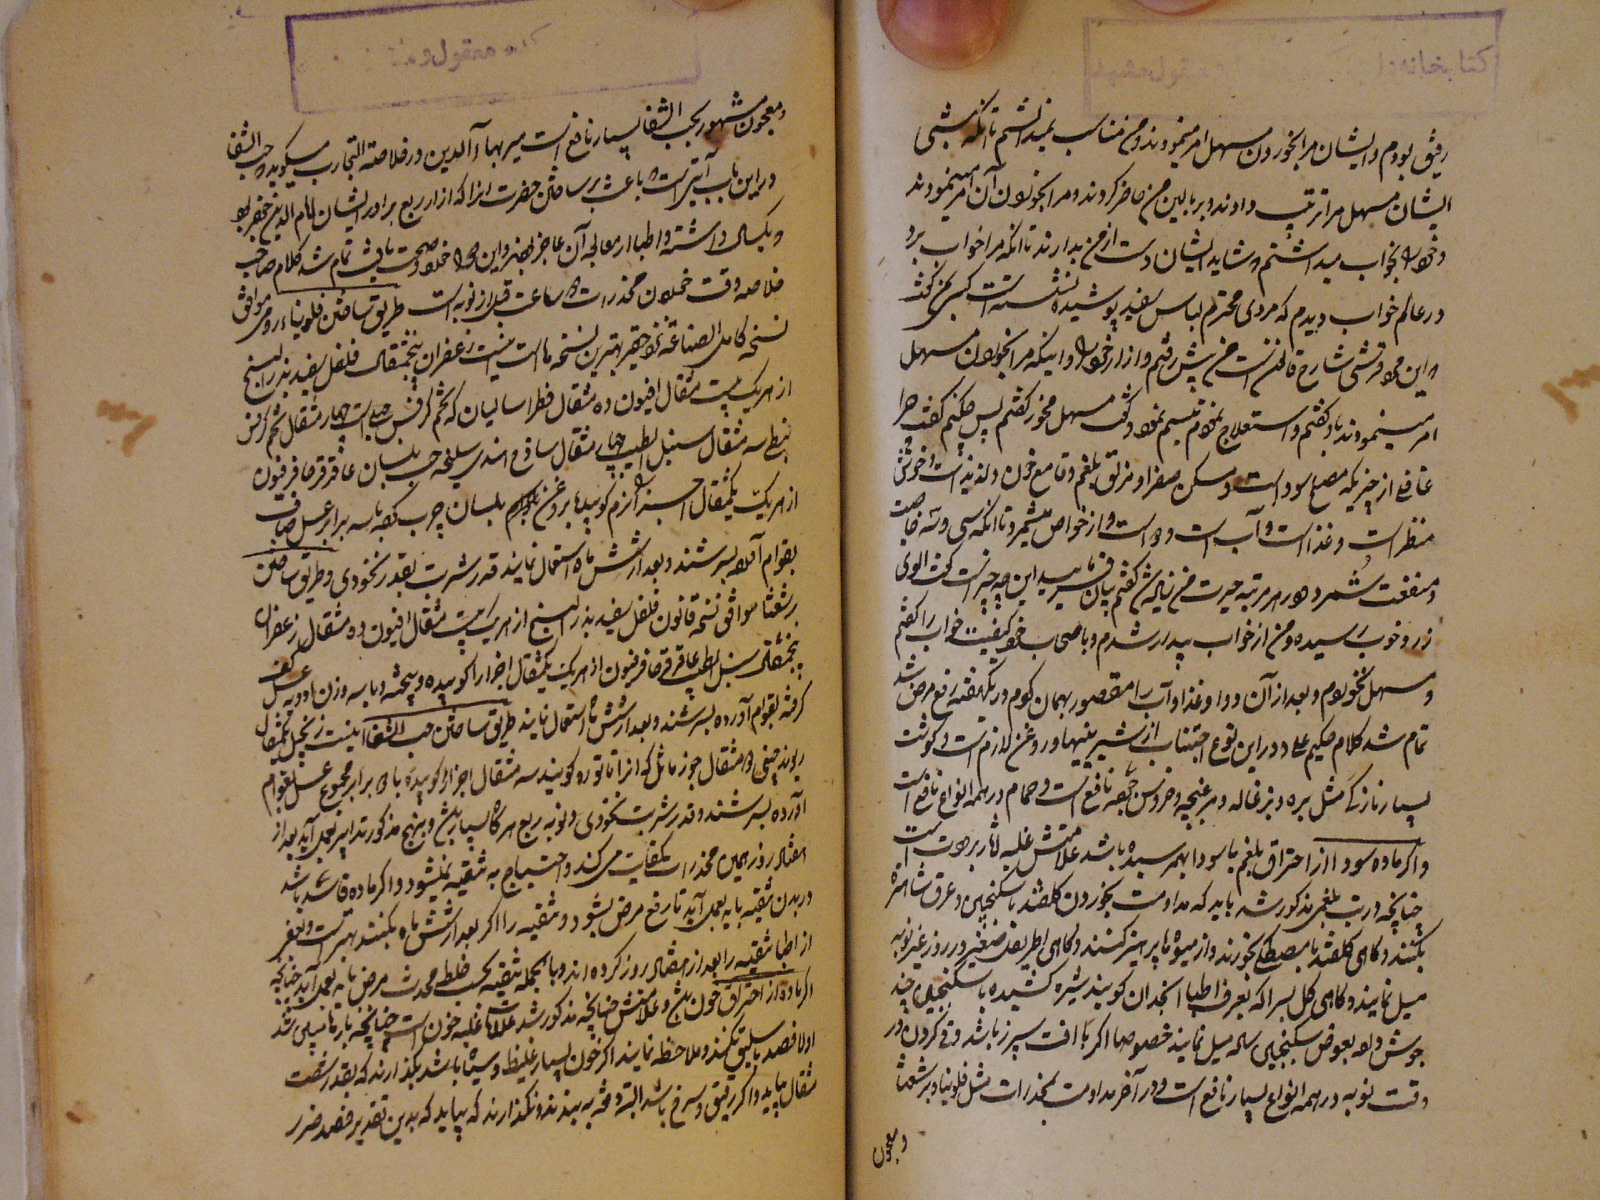 رفیق بودم و ایشان مرا بخوردن مسهل امر مینمودند و من مناسب نمیدانستم تا آنکه شبی
ایشان مسهل مرا ترتیب دادند و بر بالین من حاضر کردند و مرا بخوردن آن امر مینمودند
و خود را بخواب میداشتم که شاید ایشان دست از من بدارند تا آنکه مرا خواب برد
در عالم خواب دیدم که مردی محترم لباس سفید پوشیده نشسته است کسی بمن گفت
که این محمود قرشی شارح قانونست من پیش رفتم و از آزار خود و اینکه مرا بخوردن مسهل
امر مینمودند باو گفتم و استعلاج نمودم تبسم نمود و گفت مسهل مخور گفتم پس چکنم گفت چرا
غافلی از چیزیکه مصلح سودا است و مسکن صفرا و مزلق بلغم و قامع خون و لذیذ است و خوش
منظر است و غذا است و آب است و دوا است و از خواص میشمرد تا آنکه سی و سه خاصیت
و منفعت شمرد و در هر مرتبه حیرت من زیاده میشد گفتم بیان فرمایید این چه چیز است گفت آلوی
زرد خوب رسیده و من از خواب بیدار شدم و با صاحب خود کیفیت خواب را گفتم
و مسهل نخوردم و بعد از آن دوا و غذا و آب را مقصور بهمان کردم در یکهفته رفع مرض شد
تمام شد کلام حکیم علی و در این نوع اجتناب از شیرینیها و روغن لازم است و گوشت
بسیار نازک مثل بره و بزغاله و مرغ بچه و خروس بچه نافع است و حمام در همه انواع نافع است
و اگر ماده سودا از احتراق بلغم یا سودا بهم رسیده باشد علامتش غلبه آثار برودت است
چنانچه در تب بلغمی مذکور شد باید که مداومت بخوردن گلقند با سکنجبین و عرق شاهتره
بکنند و گاهی گلقند با مصطکی بخورند و از میوه ها پرهیز کنند و گاهی اطریفل صغیر در روز غیر نوبه
میل نمایند و گاهی گل بسر که بعرف اطبا انجدان گویند شیره کشیده با سکنجبین چند
جوش داده بعوض سکنجبین ساده میل نمایند خصوصا اگر با آفت سپرز باشد و قی کردن در
وقت نوبه در همه انواع بسیار نافع است و در آخر مداومت بمخدرات مثل فلونیا و برشعثا
و معجون
و معجون مشهور بحب الشفا بسیار نافع است میر بهاء الدین در خلاصة التجارب میگوید و حب الشفا
در این باب آیتی است و باعث بر ساختن حضرت ایزا که آزار ربع برادر ایشان امام الدین خضر بود
و یکسال داشته و اطبا از معالجه آن عاجز بودند و این دوا خورد و صحت یافت تمام شد کلام صاحب
خلاصه وقت خوردن مخدرات دو ساعت قبل از نوبه است طریق ساختن فلونیاء رومی موافق
نسخه کامل الصناعه نزد حقیر بهترین نسخه ها است اینست زعفران پنجمثقال فلفل سفید بذر البنج
از هر یک بیست مثقال افیون ده مثقال فطراسالیان که تخم کرفس جبلی است چهار مثقال تخم کرفس
نبطی سه مثقال سنبل الطیب چهار مثقال ساذج هندی سلیخه حب بلسان عاقرقرحا فرفیون
از هر یک یکمثقال اجزا را نرم کوبیده با بروغن بلسان چرب کرده با سه برابر عسل صاف
بقوام آمده بسرشند و بعد از شش ماه استعمال نمایند قدر شربت بقدر نخودی و طریق ساختن
برشعثا موافق نسخه قانون فلفل سفید بذر البنج از هر یک بیست مثقال افیون ده مثقال زعفران
پنجمثقال سنبل الطیب عاقرقرحا فرفیون از هر یک یکمثقال اجزا را کوبیده و بیخته و با سه وزن ادویه عسل کف
گرفته بقوام آورده بسرشند و بعد از شش ماه استعمال نمایند طریق ساختن حب الشفا اینست زنجبیل یکمثقال
ریوند چینی دو مثقال جوز ماثل که انرا تاتوره گویند سه مثقال اجزا را کوبیده با دو برابر مجموع عسل بقوام
آورده بسرشند و قدر شربت نخودی و نوبه ربع هر گاه بسیار باشد و بنهج مذکور تدابیر بعمل آید بعد از
هفتاد روز همین مخدرات کفایت میکند و احتیاج به تنقیه نمیشود و اگر ماده فاسد باشد
در بدن تنقیه باید بعمل آید تا رفع مرض بشود و تنقیه را اگر بعد از شش ماه بکنند بهتر است و بعضی
از اطبا تنقیه را بعد از هفتاد روز کرده اند و بالجمله تنقیه بحسب خلط محدث مرض باید بعمل آید چنانچه
اگر ماده از احتراق خون باشد و علامتش چنانچه مذکور شد علامات غلبه خون است چنانچه بارها بیان شد
اولا فصد باسلیق بکنند و ملاحظه نمایند اگر خون بسیار غلیظ و سیاه باشد بگذارند که بقدر شصت
مثقال بیاید و اگر رقیق و سرخ باشد البته در همه ببندند و نگذارند که بیاید که بدین تقدیر فصد ضرر